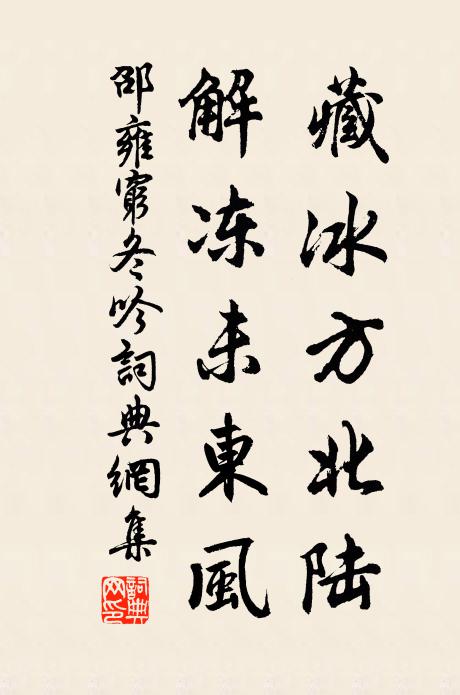 藏冰方北陆
解冻未東風
邵雍窮冬吟詞典網集
詞典網印